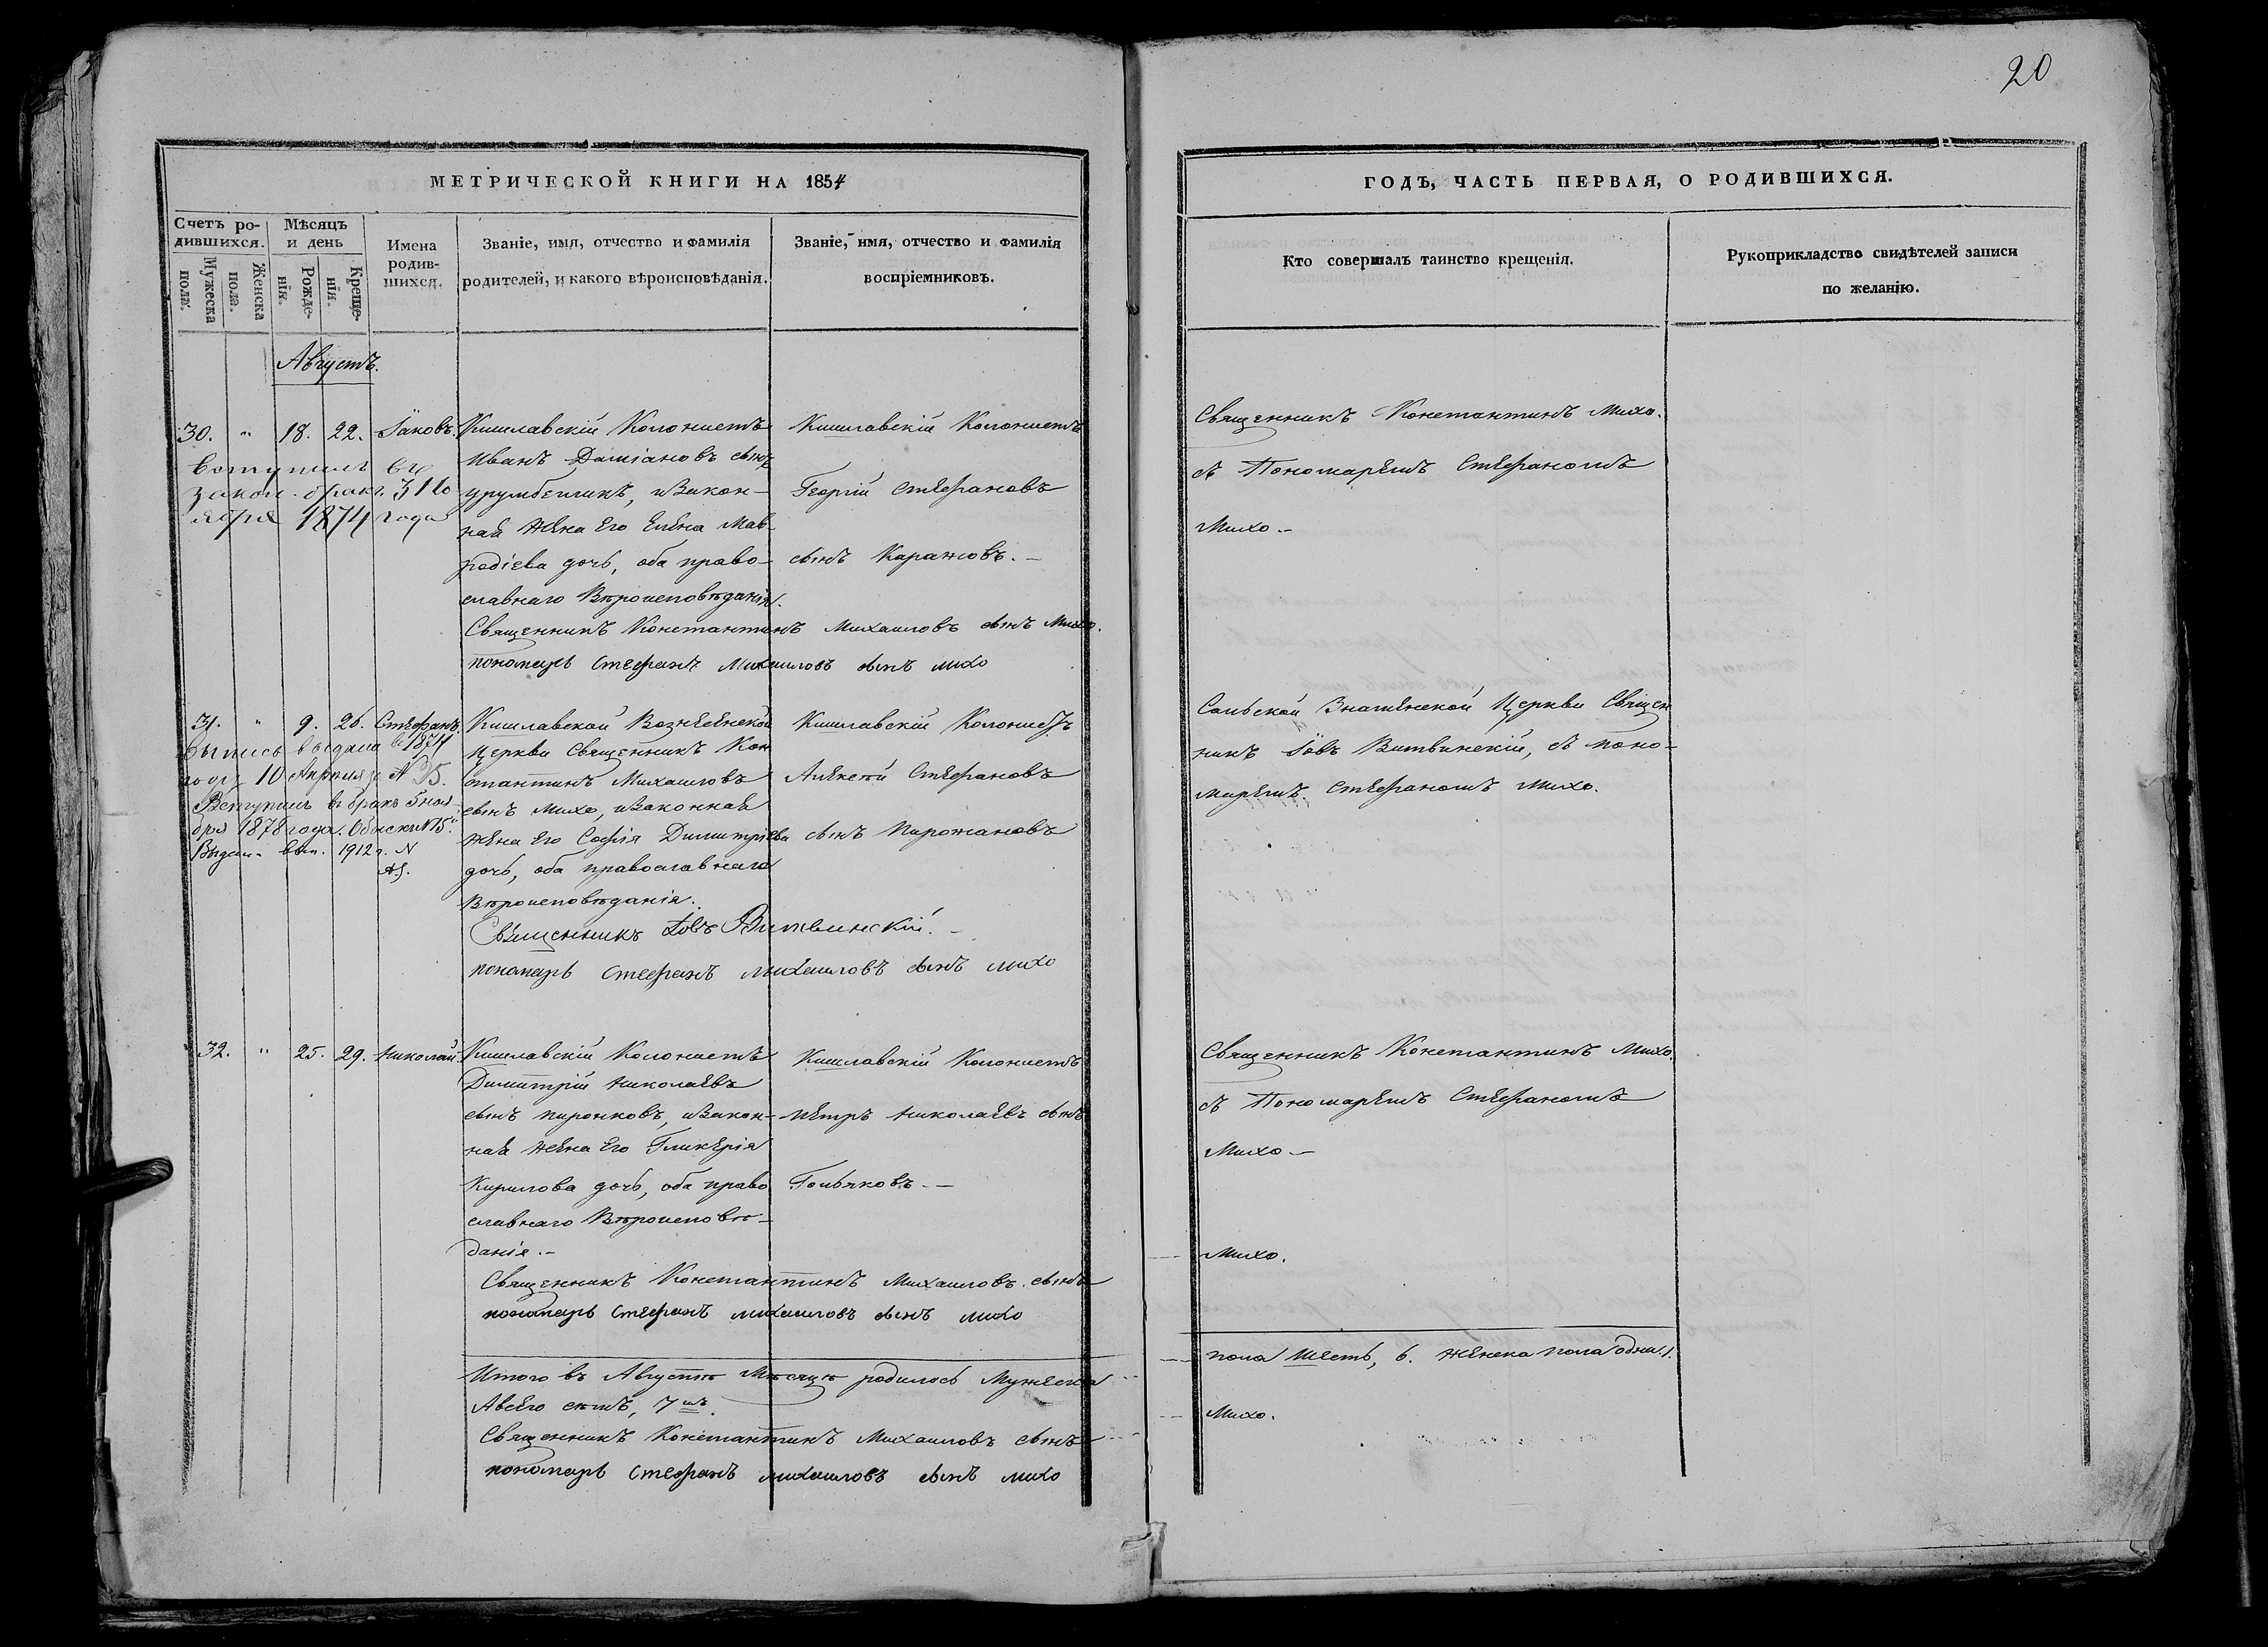 20
МЕТРИЧЕСКОЙ КНИГИ НА 1854
Счетъ ро-
дившихся.
Мужеска
пола.
Женска
пола.
Мѣсяцъ
и день
Рожде-
нія.
Креще-
нія.
Имена
родив-
шихся.
Званіе, имя, отчество и фамилія
родителей, и какого вѣроисповѣданія.
Званіе, имя, отчество и фамилія
воспріемниковъ.
Августъ.
30. " 18. 22. Іаковъ.
Вступилъ въ
закон. бракъ
1874 года
Кишлавскій Колонистъ
Иванъ Даміановъ сынъ
изакон-
ная жена его Елена Мав-
родіева дочь, оба право-
славнаго Вѣроисповѣданія.
Кишлавскій Колонистъ
Георгій Стефановъ
сынъ Каражовъ.
Священникъ Константинъ Михаиловъ сынъ Михо.
пономарь Стефанъ Михаиловъ сынъ михо
31. " 9. 26. Стефанъ.
Выпись выдана въ 1874
году 10 Апрѣля N
Вступилъ въ бракъ
бря 1878 года. Обыскъ N 15.
Выдан. вып. 1912 г. N
Кишлавской Вознесенской
Церкви Священникъ Кон
стантинъ Михаиловъ
сынъ Михо, изаконная
жена Его Софія Димитріева
дочь, оба православнаго
Вѣроисповѣданія.
Кишлавскій Колонистъ
Алексѣй Стефановъ
сынъ Пирожановъ
Священникъ Іовъ Витвинскій.
пономарь Стефанъ михаиловъ сынъ михо
32. " 25. 29. Николай.
Кишлавскій Колонистъ
Димитрій Николаевъ
сынъ пиронковъ, изакон-
ная жена Его Гликерія
Кирилова дочь, оба право
славнаго Вѣроисповѣ-
данія.
Кишлавскій Колонистъ
Петръ Николаевъ сынъ
Священникъ Константинъ Михаиловъ сынъ
пономарь Стефанъ михаиловъ сынъ михо
Итого въ Августѣ Мѣсяцѣ родилось Мужеска
Авсего семь, 7
Священникъ Константинъ Михаиловъ сынъ
пономарь Стефанъ михаиловъ сынъ михо
ГОДЪ, ЧАСТЬ ПЕРВАЯ, О РОДИВШИХСЯ.
Кто совершалъ таинство крещенія.
Рукоприкладство свидѣтелей записи
по желанію.
Священникъ Константинъ Михо.
съ Пономаремъ Стефаномъ
Михо.
Знаменской Церкви Священ
никъ Іовъ Витвинскій, съ поно-
маремъ Стефаномъ Михо.
Священникъ Константинъ Михо.
съ Пономаремъ Стефаномъ
Михо
Михо.
пола Шесть, 6. Женска пола одна 1.
Михо.